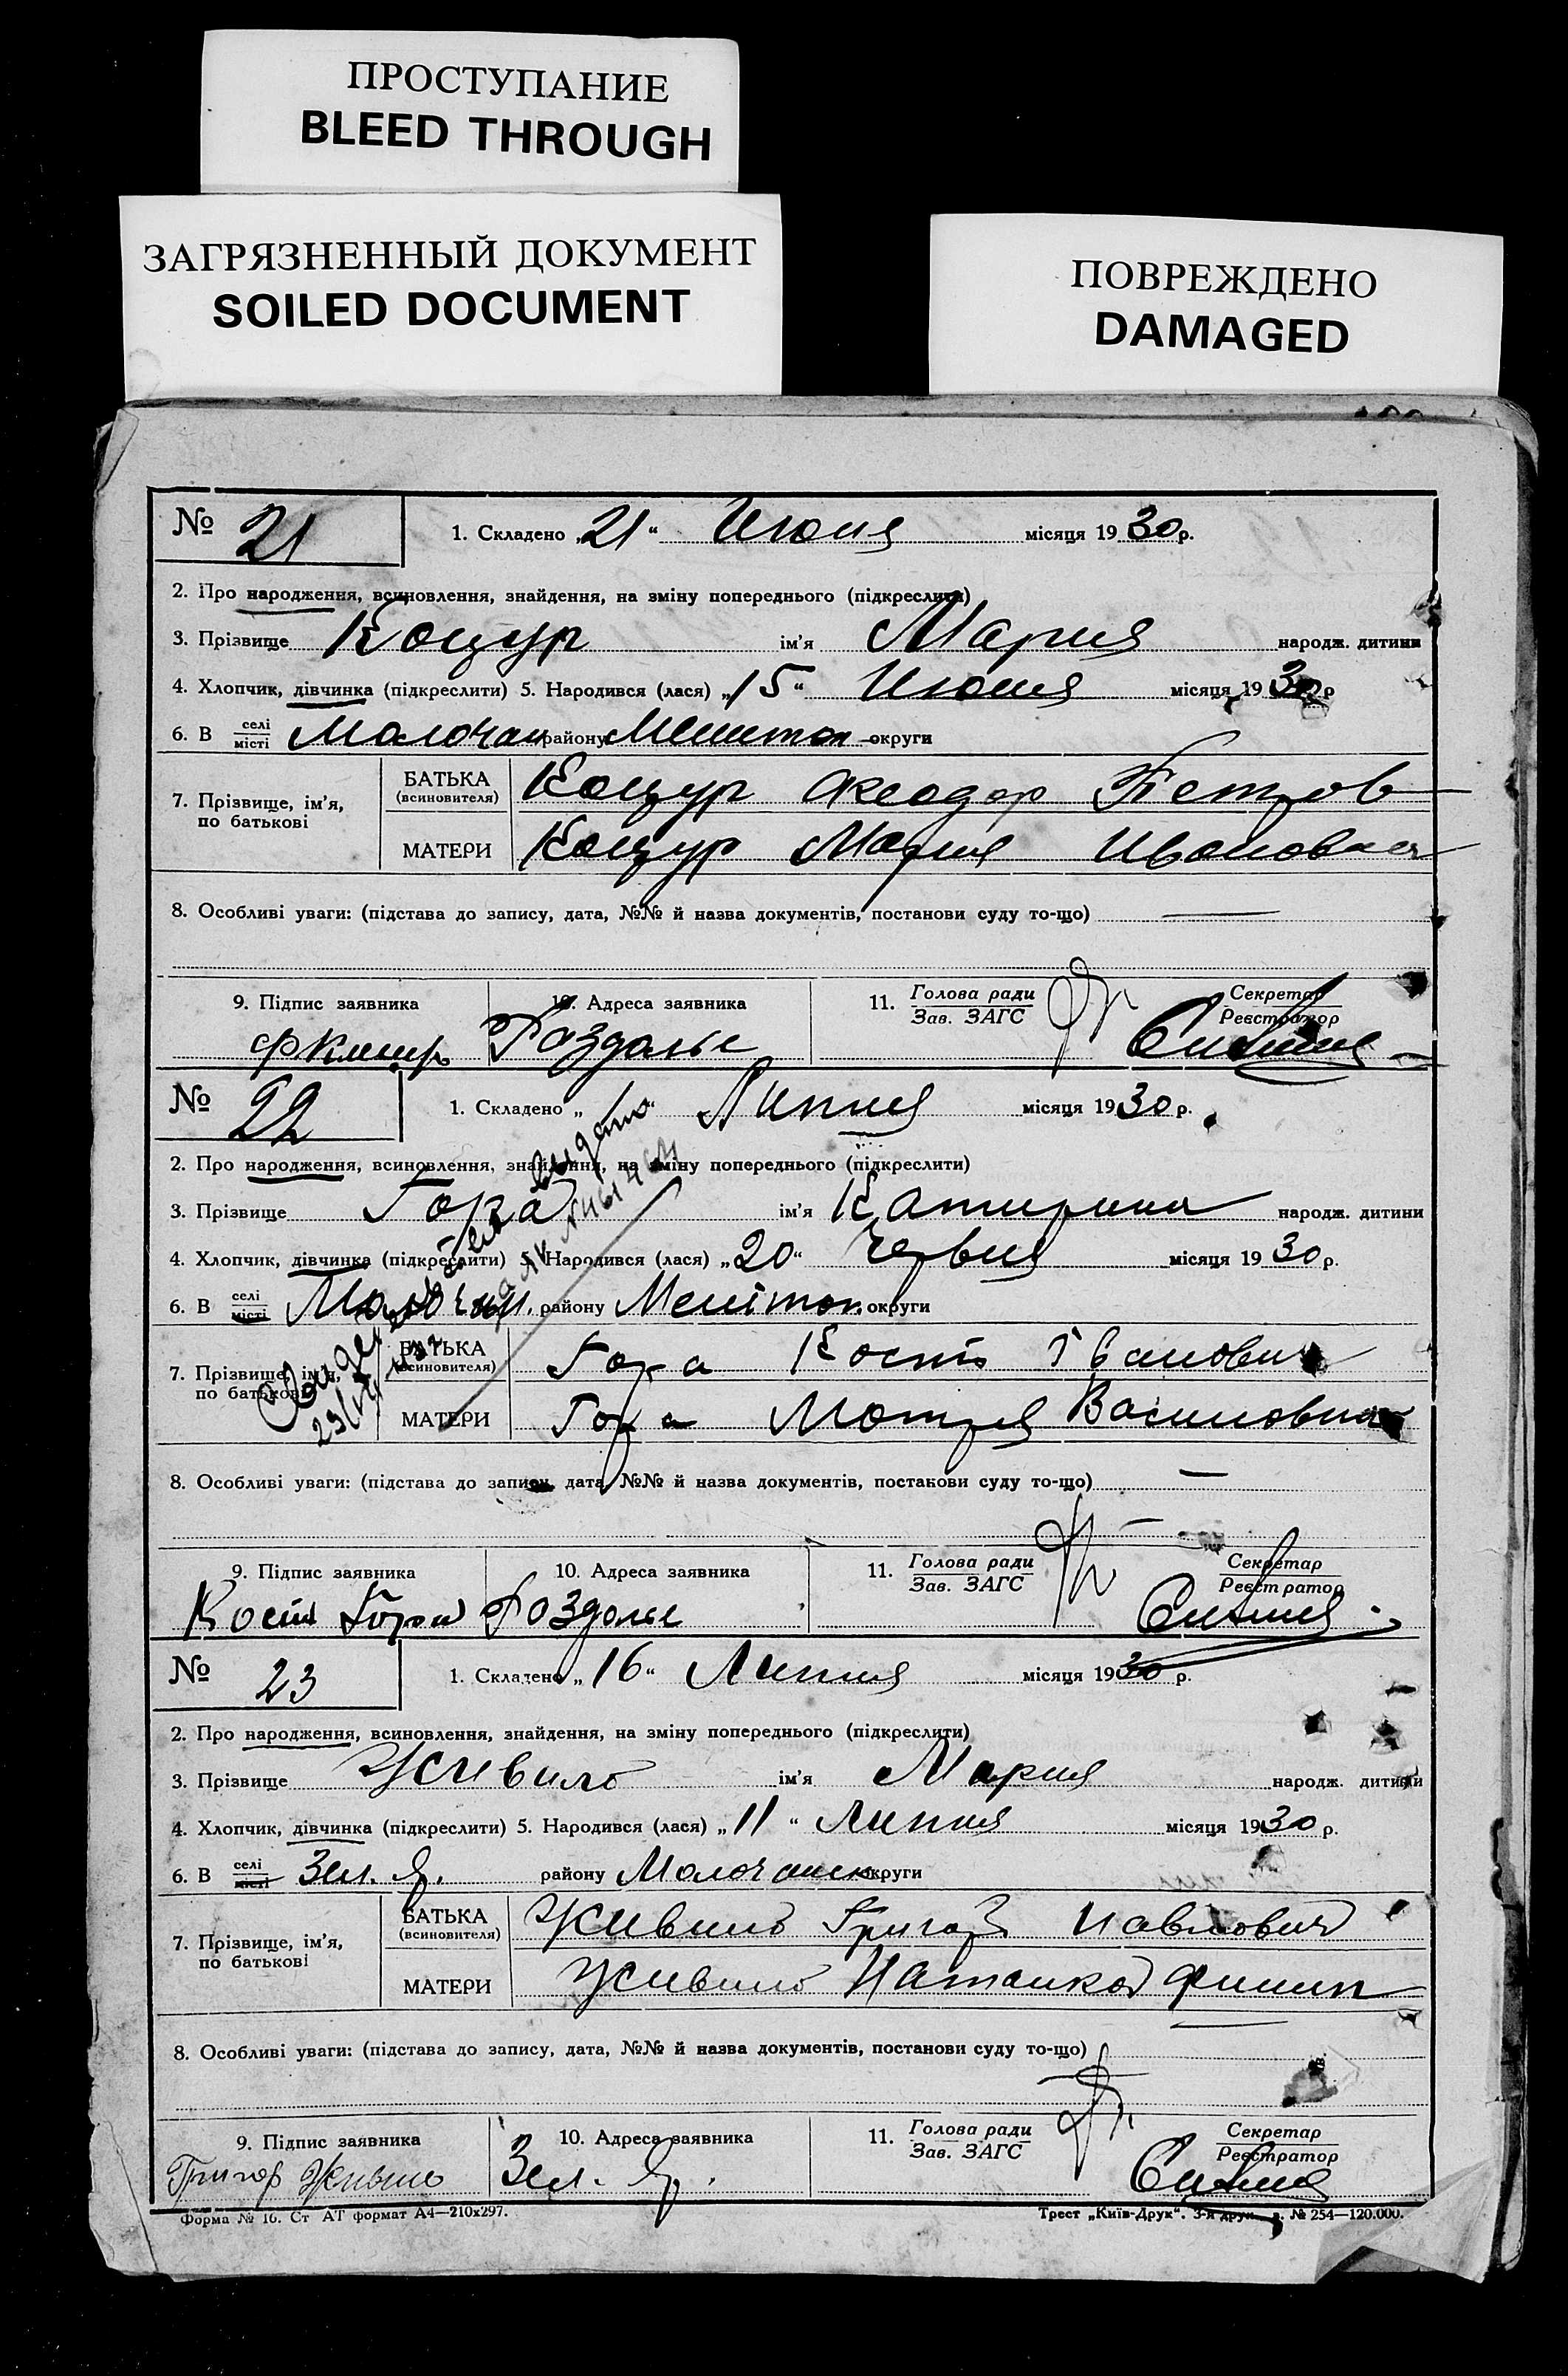 ПРОСТУПАНИЕ
BLEED THROUGH
ЗАГРЯЗНЕННЫЙ ДОКУМЕНТ
SOILED DOCUMENT
ПОВРЕЖДЕНО
DAMAGED
№ 21 1. Складено „21“ Июня місяця 1930 р.
2. Про народження, всиновлення, знайдення, на зміну попереднього (підкреслити)
3. Прізвище Коцур ім'я Мария народж. дитини
4. Хлопчик, дівчинка (підкреслити) 5. Народився (лася) „15“ Июня місяця 1930 р
6. В селі місті Молочан району Мелитоп округи
7. Прізвище, ім'я, по батькові
БАТЬКА (всиновителя) Коцур Феодор Петров
МАТЕРИ Коцур Мария Ивановна
8. Особливі уваги: (підстава до запису, дата, №№ й назва документів, постанови суду то-що) —
9. Підпис заявника 10. Адреса заявника 11. Голова ради Зав. ЗАГС Секретар Реєстратор
Роздолье
№ 22 1. Складено „ “ Липня місяця 1930 р.
2. Про народження, всиновлення, знайдення, на зміну попереднього (підкреслити)
3. Прізвище Гора ім'я Катирина народж. дитини
4. Хлопчик, дівчинка (підкреслити) 5. Народився (лася) „20“ Червня місяця 1930 р.
6. В селі місті Молочан. району Мелітоп. округи
7. Прізвище, ім'я, по батькові
БАТЬКА (всиновителя) Гора Кость Іванович
МАТЕРИ Гора Мотря Василовна
8. Особливі уваги: (підстава до запису, дата, №№ й назва документів, постанови суду то-що) —
9. Підпис заявника 10. Адреса заявника 11. Голова ради Зав. ЗАГС Секретар Реєстратор
Кость Гора Роздолье
№ 23 1. Складено „16“ Липня місяця 1930 р.
2. Про народження, всиновлення, знайдення, на зміну попереднього (підкреслити)
3. Прізвище Живило ім'я Мария народж. дитини
4. Хлопчик, дівчинка (підкреслити) 5. Народився (лася) „11“ Липня місяця 1930 р.
6. В селі місті Зел. Я. району Молочанск округи
7. Прізвище, ім'я, по батькові
БАТЬКА (всиновителя) Живило Григор Павлович
МАТЕРИ Живило Наталка Филип
8. Особливі уваги: (підстава до запису, дата, №№ й назва документів, постанови суду то-що)
9. Підпис заявника 10. Адреса заявника 11. Голова ради Зав. ЗАГС Секретар Реєстратор
Григор Живило Зел. Я.
Форма № 16. Ст АТ формат А4—210x297. Трест „Київ-Друк“. 3-я друк. № 254—120.000.